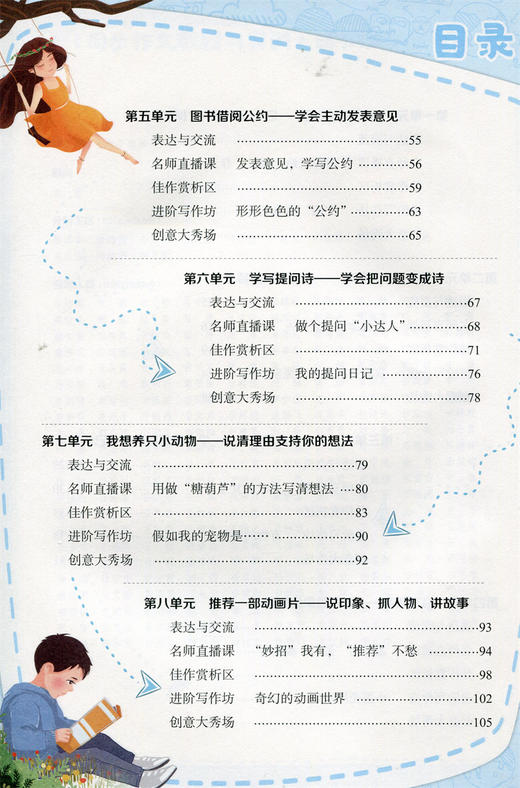 目录
第五单元 图书借阅公约——学会主动发表意见
表达与交流 ……………………………55
名师直播课 发表意见，学写公约 …………56
佳作赏析区 ……………………………59
进阶写作坊 形形色色的“公约” …………63
创意大秀场 ……………………………65
第六单元 学写提问诗——学会把问题变成诗
表达与交流 ……………………………67
名师直播课 做个提问“小达人” …………68
佳作赏析区 ……………………………71
进阶写作坊 我的提问日记 ………………76
创意大秀场 ……………………………78
第七单元 我想养只小动物——说清理由支持你的想法
表达与交流 ……………………………79
名师直播课 用做“糖葫芦”的方法写清想法 …80
佳作赏析区 ……………………………83
进阶写作坊 假如我的宠物是…… ……………90
创意大秀场 ……………………………92
第八单元 推荐一部动画片——说印象、抓人物、讲故事
表达与交流 ……………………………93
名师直播课 “妙招”我有，“推荐”不愁 ……94
佳作赏析区 ……………………………98
进阶写作坊 奇幻的动画世界 ………………102
创意大秀场 ……………………………105